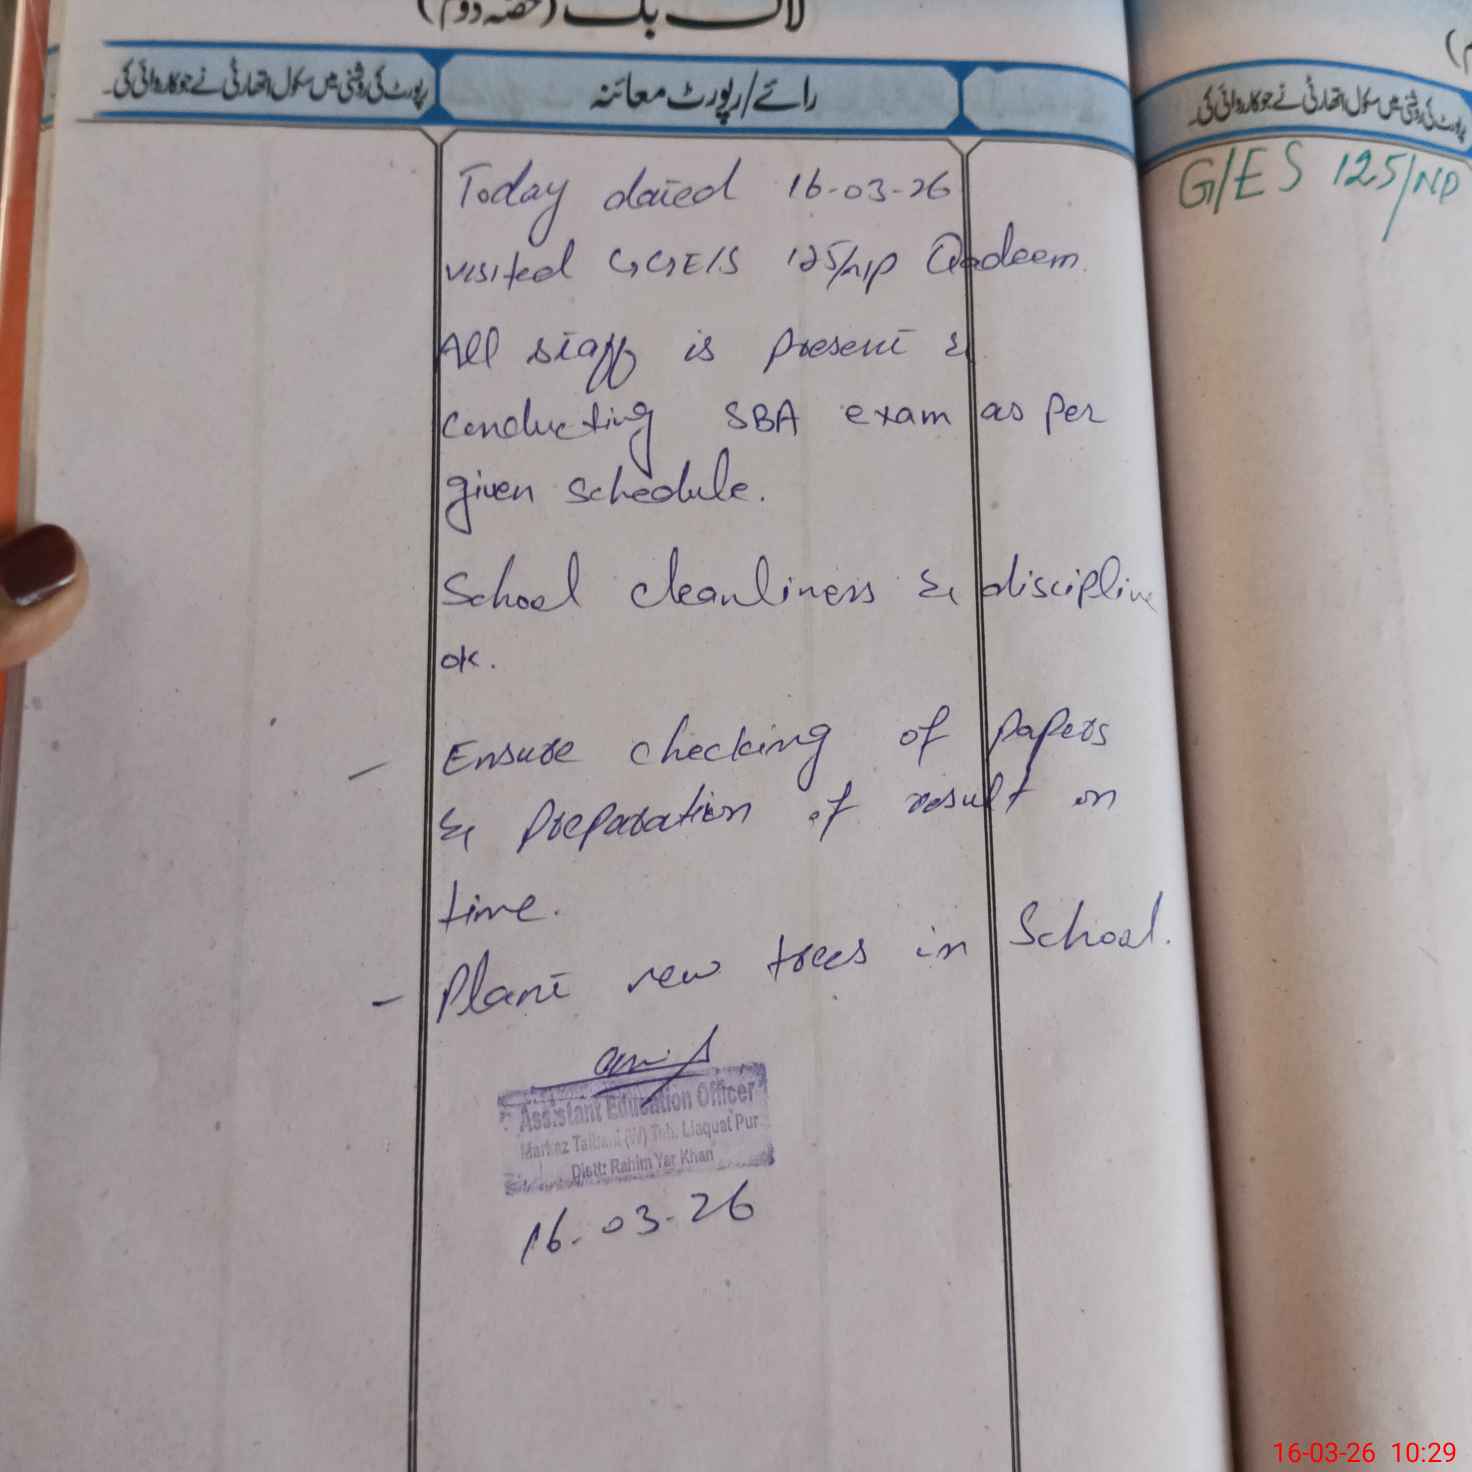 لاگ بک (حصہ دوم)
رپورٹ کی روشنی میں سکول اتھارٹی نے جو کاروائی کی۔
رائے/رپورٹ معائنہ
Today dated 16-03-26
visited GGE/S 125/NP Qadeem.
All staff is present &
conducting SBA exam as per
given schedule.
School cleanliness & discipline
ok.
- Ensure checking of papers
& preparation of result on
time.
- Plant new trees in School.
Assistant Education Officer
Markaz (W) Teh. Liaquat Pur
Distt: Rahim Yar Khan
16-03-26
رپورٹ کی روشنی میں سکول اتھارٹی نے جو کاروائی کی۔
G/ES 125/NP
16-03-26 10:29